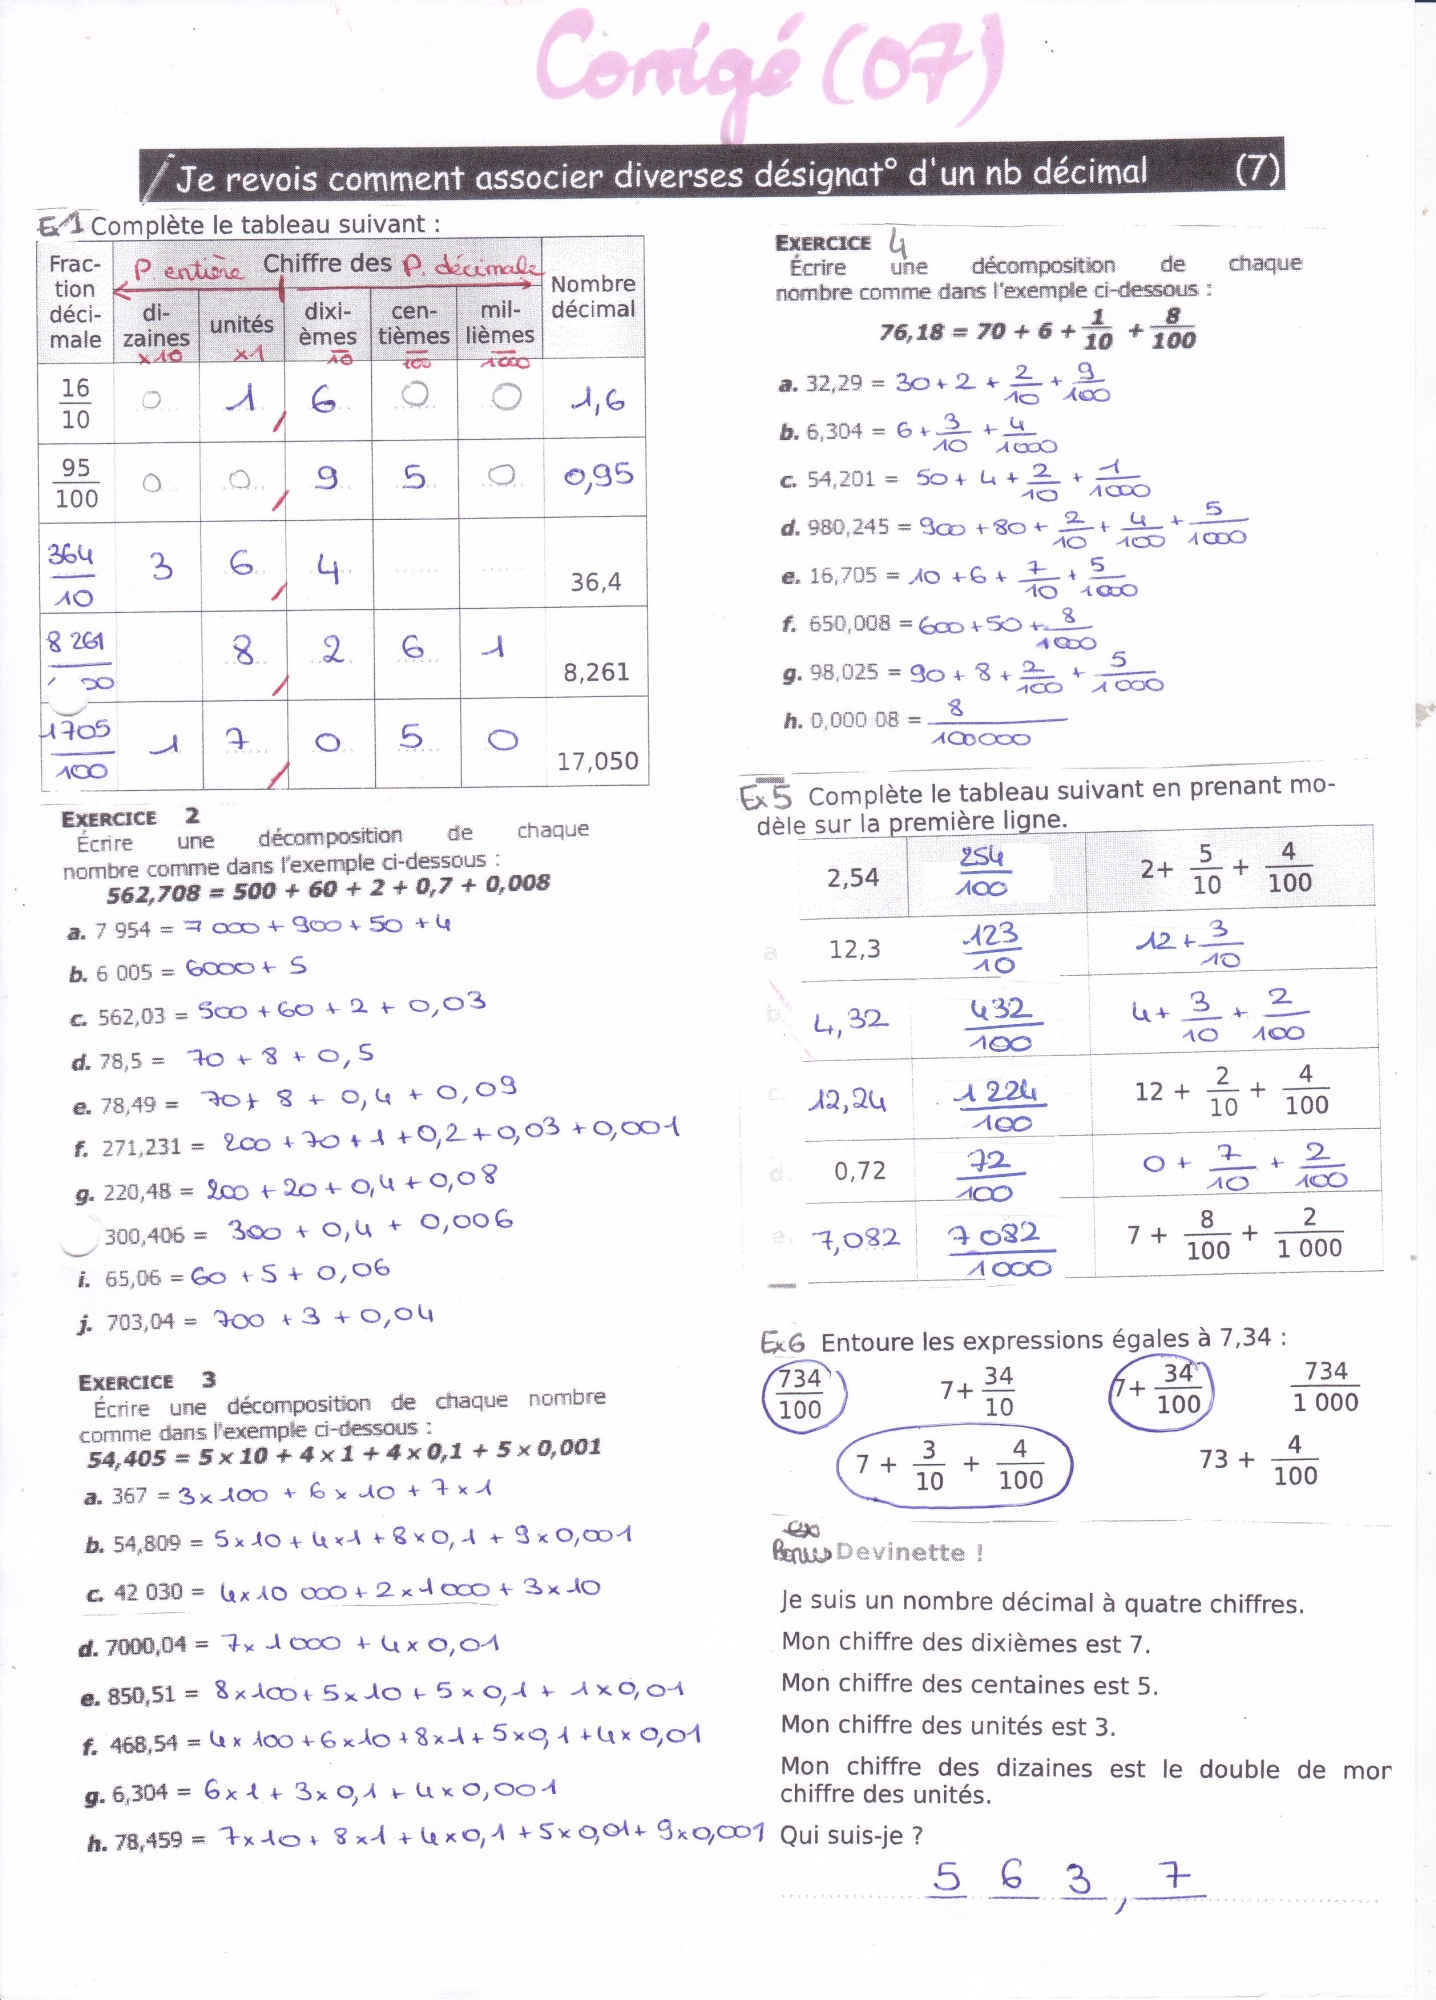 Corrigé (07)
Je revois comment associer diverses désignat° d'un nb décimal (7)
Ex1 Complète le tableau suivant :
Frac-
tion
déci-
male
P. entière Chiffre des P. décimale
Nombre
décimal
di-
zaines
unités
dixi-
èmes
cen-
tièmes
mil-
lièmes
x10 x1 1/10 1/100 1/1000
16/10 0 1 , 6 0 0 1,6
95/100 0 0 , 9 5 0 0,95
364/10 3 6 , 4 36,4
8 261/ 00 8 , 2 6 1 8,261
1705/100 1 7 , 0 5 0 17,050
EXERCICE 2
Écrire une décomposition de chaque
nombre comme dans l'exemple ci-dessous :
562,708 = 500 + 60 + 2 + 0,7 + 0,008
a. 7 954 = 7 000 + 900 + 50 + 4
b. 6 005 = 6000 + 5
c. 562,03 = 500 + 60 + 2 + 0,03
d. 78,5 = 70 + 8 + 0,5
e. 78,49 = 70 + 8 + 0,4 + 0,09
f. 271,231 = 200 + 70 + 1 + 0,2 + 0,03 + 0,001
g. 220,48 = 200 + 20 + 0,4 + 0,08
300,406 = 300 + 0,4 + 0,006
i. 65,06 = 60 + 5 + 0,06
j. 703,04 = 700 + 3 + 0,04
EXERCICE 3
Écrire une décomposition de chaque nombre
comme dans l'exemple ci-dessous :
54,405 = 5 x 10 + 4 x 1 + 4 x 0,1 + 5 x 0,001
a. 367 = 3 x 100 + 6 x 10 + 7 x 1
b. 54,809 = 5 x 10 + 4 x 1 + 8 x 0,1 + 9 x 0,001
c. 42 030 = 4 x 10 000 + 2 x 1000 + 3 x 10
d. 7000,04 = 7 x 1000 + 4 x 0,01
e. 850,51 = 8 x 100 + 5 x 10 + 5 x 0,1 + 1 x 0,01
f. 468,54 = 4 x 100 + 6 x 10 + 8 x 1 + 5 x 0,1 + 4 x 0,01
g. 6,304 = 6 x 1 + 3 x 0,1 + 4 x 0,001
h. 78,459 = 7 x 10 + 8 x 1 + 4 x 0,1 + 5 x 0,01 + 9 x 0,001
EXERCICE 4
Écrire une décomposition de chaque
nombre comme dans l'exemple ci-dessous :
76,18 = 70 + 6 + 1/10 + 8/100
a. 32,29 = 30 + 2 + 2/10 + 9/100
b. 6,304 = 6 + 3/10 + 4/1000
c. 54,201 = 50 + 4 + 2/10 + 1/1000
d. 980,245 = 900 + 80 + 2/10 + 4/100 + 5/1000
e. 16,705 = 10 + 6 + 7/10 + 5/1000
f. 650,008 = 600 + 50 + 8/1000
g. 98,025 = 90 + 8 + 2/100 + 5/1000
h. 0,000 08 = 8/100000
Ex5 Complète le tableau suivant en prenant mo-
dèle sur la première ligne.
2,54 254/100 2+ 5/10 + 4/100
a. 12,3 123/10 12 + 3/10
b. 4,32 432/100 4 + 3/10 + 2/100
c. 12,24 1 224/100 12 + 2/10 + 4/100
d. 0,72 72/100 0 + 7/10 + 2/100
e. 7,082 7 082/1000 7 + 8/100 + 2/1 000
Ex6 Entoure les expressions égales à 7,34 :
734/100 7+ 34/10 7+ 34/100 734/1 000
7 + 3/10 + 4/100 73 + 4/100
ex
Bonus Devinette !
Je suis un nombre décimal à quatre chiffres.
Mon chiffre des dixièmes est 7.
Mon chiffre des centaines est 5.
Mon chiffre des unités est 3.
Mon chiffre des dizaines est le double de mon
chiffre des unités.
Qui suis-je ?
5 6 3 , 7